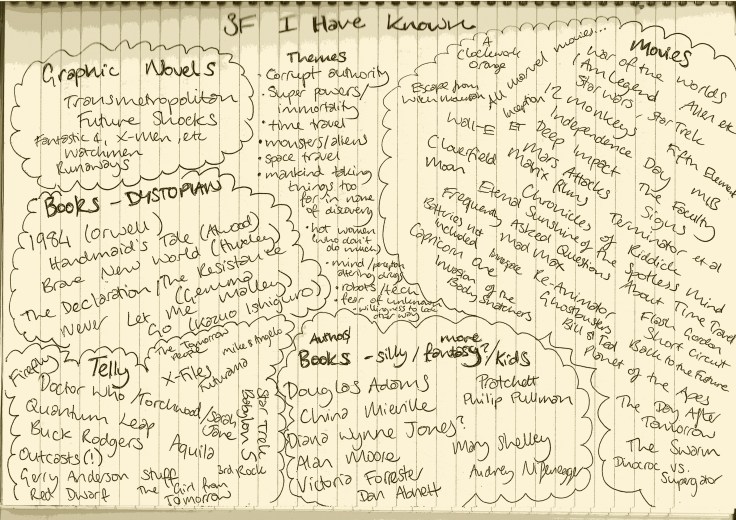 SF I Have Known
Graphic Novels
Transmetropolitan
Future Shocks
Fantastic 4, X-Men, etc
Watchmen
Runaways
Themes
• Corrupt authority
• Super powers/
immortality
• time travel
• monsters/aliens
• space travel
• mankind taking
things too
far in name
of discovery
• hot women
(who don't
do much)
• mind/
altering drugs
• robots/tech
• fear of unknown
- willingness to look
other way
Books - DYSTOPIAN
1984 (Orwell)
Handmaid's Tale (Atwood)
Brave New World (Huxley)
The Declaration/The Resistance
(Gemma Malley)
Never Let Me
Go (Kazuo Ishiguro)
Telly
Firefly
The Tomorrow
People
Mike & Angelo
X-Files
Futurama
Doctor Who/Torchwood/Sarah
Jane
Quantum Leap
Buck Rodgers
Aquila
Outcasts(!)
Gerry Anderson stuff
Red Dwarf
The Girl from
Tomorrow
3rd Rock
Star Trek
Babylon 5
Authors
Books - silly/more fantasy?/kids
Douglas Adams
China Mieville
Diana Wynne Jones?
Alan Moore
Victoria Forrester
Dan Abnett
Pratchett
Philip Pullman
Mary Shelley
Audrey Niffenegger
Movies
A
Clockwork
Orange
All marvel movies...
War of the Worlds
I Am Legend
Alien etc
Star Wars, Star Trek
Escape from
Witch Mountain
Inception
12 Monkeys
Fifth Element
Wall-E
ET
Independence Day
MIB
Deep Impact
The Faculty
Mars Attacks
Signs
Cloverfield
Matrix films
Terminator et al
Moon
Chronicles of Riddick
Eternal Sunshine of the Spotless Mind
Frequently Asked Questions About Time Travel
Batteries not
Included
Mad Max
Flash Gordon
Capricorn One
Re-Animator
Short Circuit
Invasion of the
Body Snatchers
Ghostbusters
Back to the Future
Bill & Ted
Planet of the Apes
The Day After
Tomorrow
The Swarm
Dinocroc vs.
Supergator